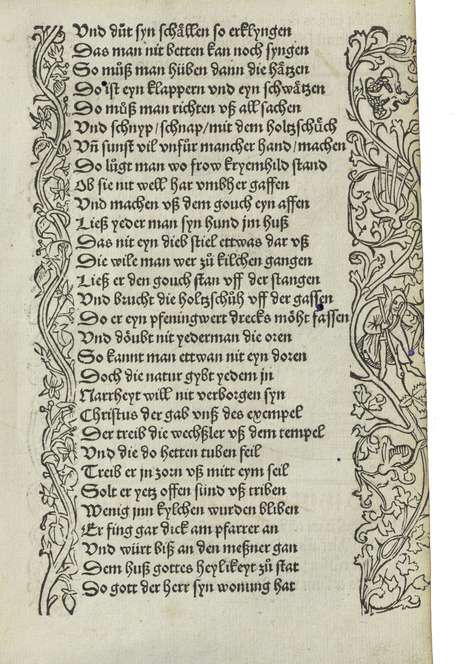 Vnd důt syn schällen so erklyngen
Das man nit betten kan noch syngen
So můß man hüben dann die hätzen
Do ist eyn klappern vnd eyn schwätzen
Do můß man richten vß all sachen
Vnd schnyp/schnap/mit dem holtzschůch
Vñ sunst vil vnfůr mancher hand/machen
Do lůgt man wo frow kryemhild stand
Ob sie nit well har vmbher gaffen
Vnd machen vß dem gouch eyn affen
Ließ yeder man syn hund jm huß
Das nit eyn dieb stiel ettwas dar vß
Die wile man wer zů kilchen gangen
Ließ er den gouch stan vff der stangen
Vnd brucht die holtzschůh vff der gassen
Do er eyn pfeningwert drecks möht fassen
Vnd döubt nit yederman die oren
So kannt man ettwan nit eyn doren
Doch die natur gybt yedem jn
Narrheyt will nit verborgen syn
Christus der gab vnß des exempel
Der treib die wechßler vß dem tempel
Vnd die do hetten tuben feil
Treib er in zorn vß mitt eym seil
Solt er yetz offen sünd vß triben
Wenig jnn kylchen wurden bliben
Er fing gar dick am pfarrer an
Vnd würt biß an den meßner gan
Dem huß gottes heylikeyt zů stat
Do gott der herr syn wonung hat